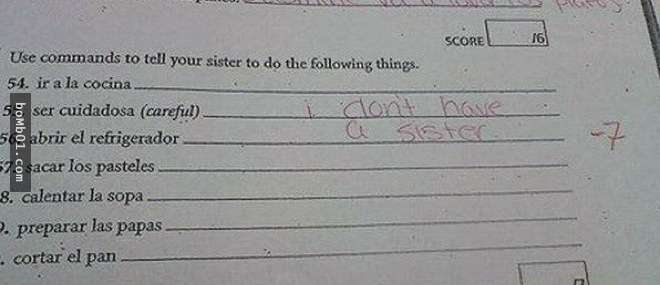 SCORE /6
Use commands to tell your sister to do the following things.
54. ir a la cocina
ser cuidadosa (careful) i don't have
abrir el refrigerador a sister. -7
sacar los pasteles
8. calentar la sopa
. preparar las papas
. cortar el pan
bomb01.com